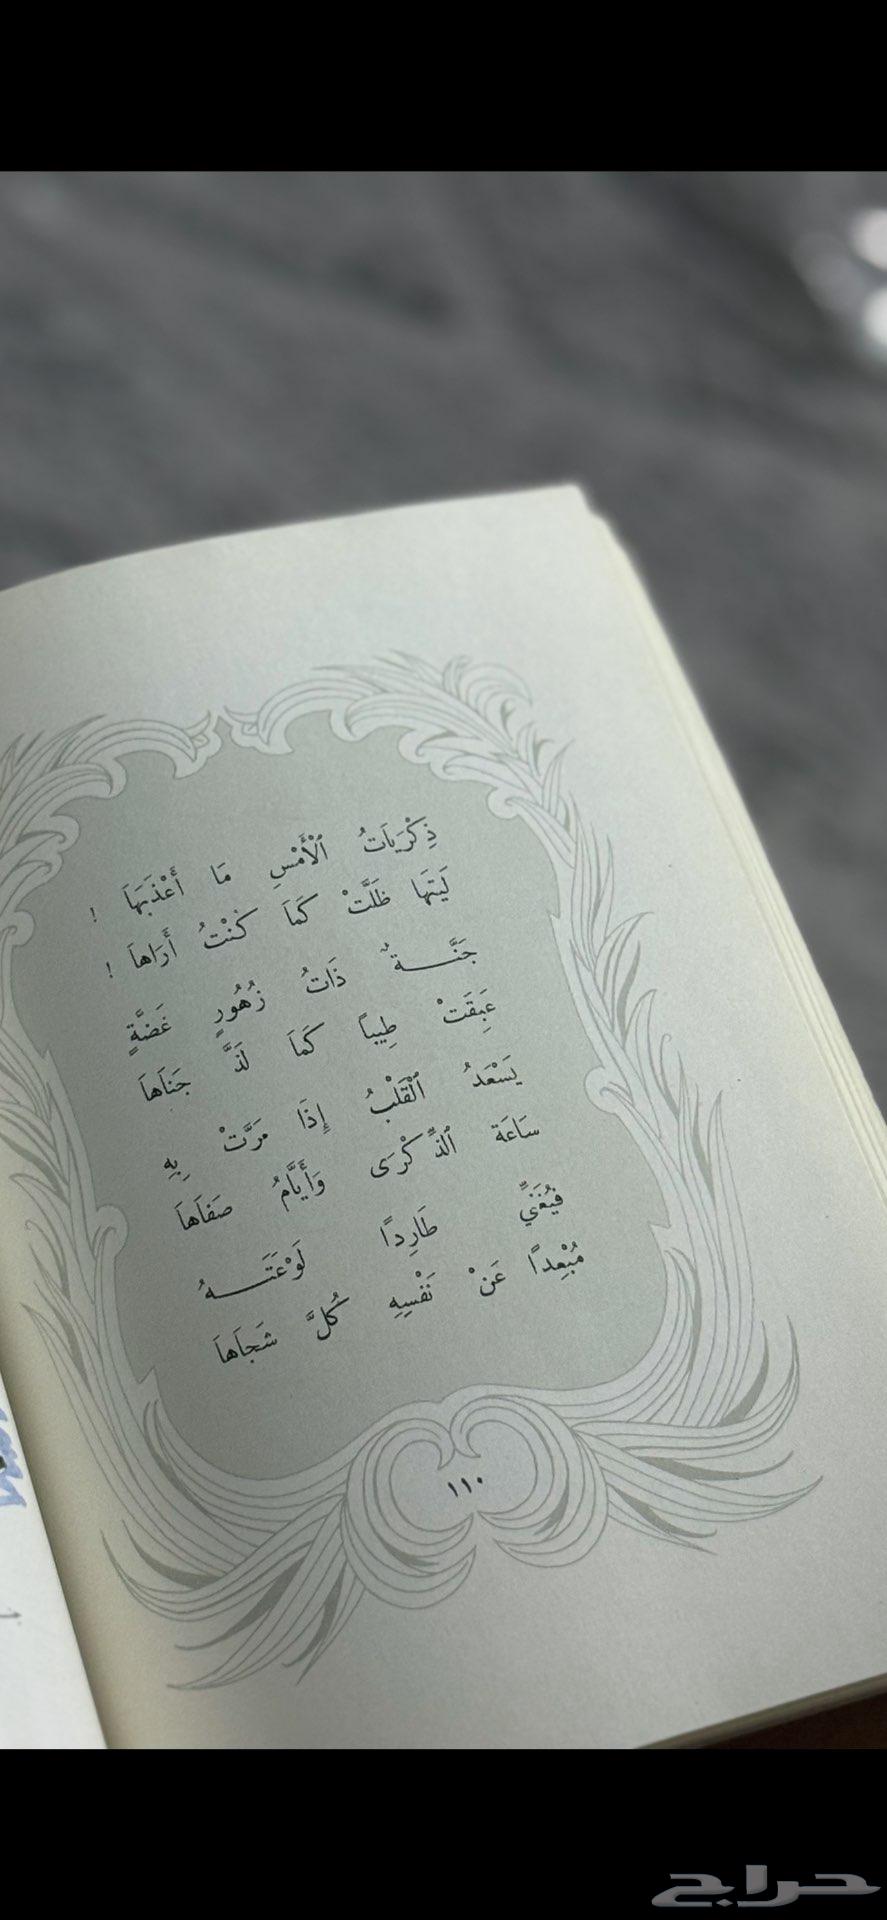 ذِكْرَيَاتُ ٱلْأَمْسِ مَا أَعْذَبَهَا !
لَيْتَهَا ظَلَّتْ كَمَا كُنْتُ أَرَاهَا !
جَنَّـــةٌ ذَاتُ زُهُورٍ غَضَّةٍ
عَبِقَتْ طِيباً كَمَا لَذَّ جَنَاهَا
يَسْعَدُ ٱلْقَلْبُ إِذَا مَرَّتْ بِهِ
سَاعَة ٱلذِّكْرَى وَأَيَّامُ صَفَاهَا
فَيُغَنِّي طَارِداً لَوْعَتَـــهُ
مُبْعِداً عَنْ نَفْسِهِ كُلَّ شَجَاهَا
١١٠
حراج